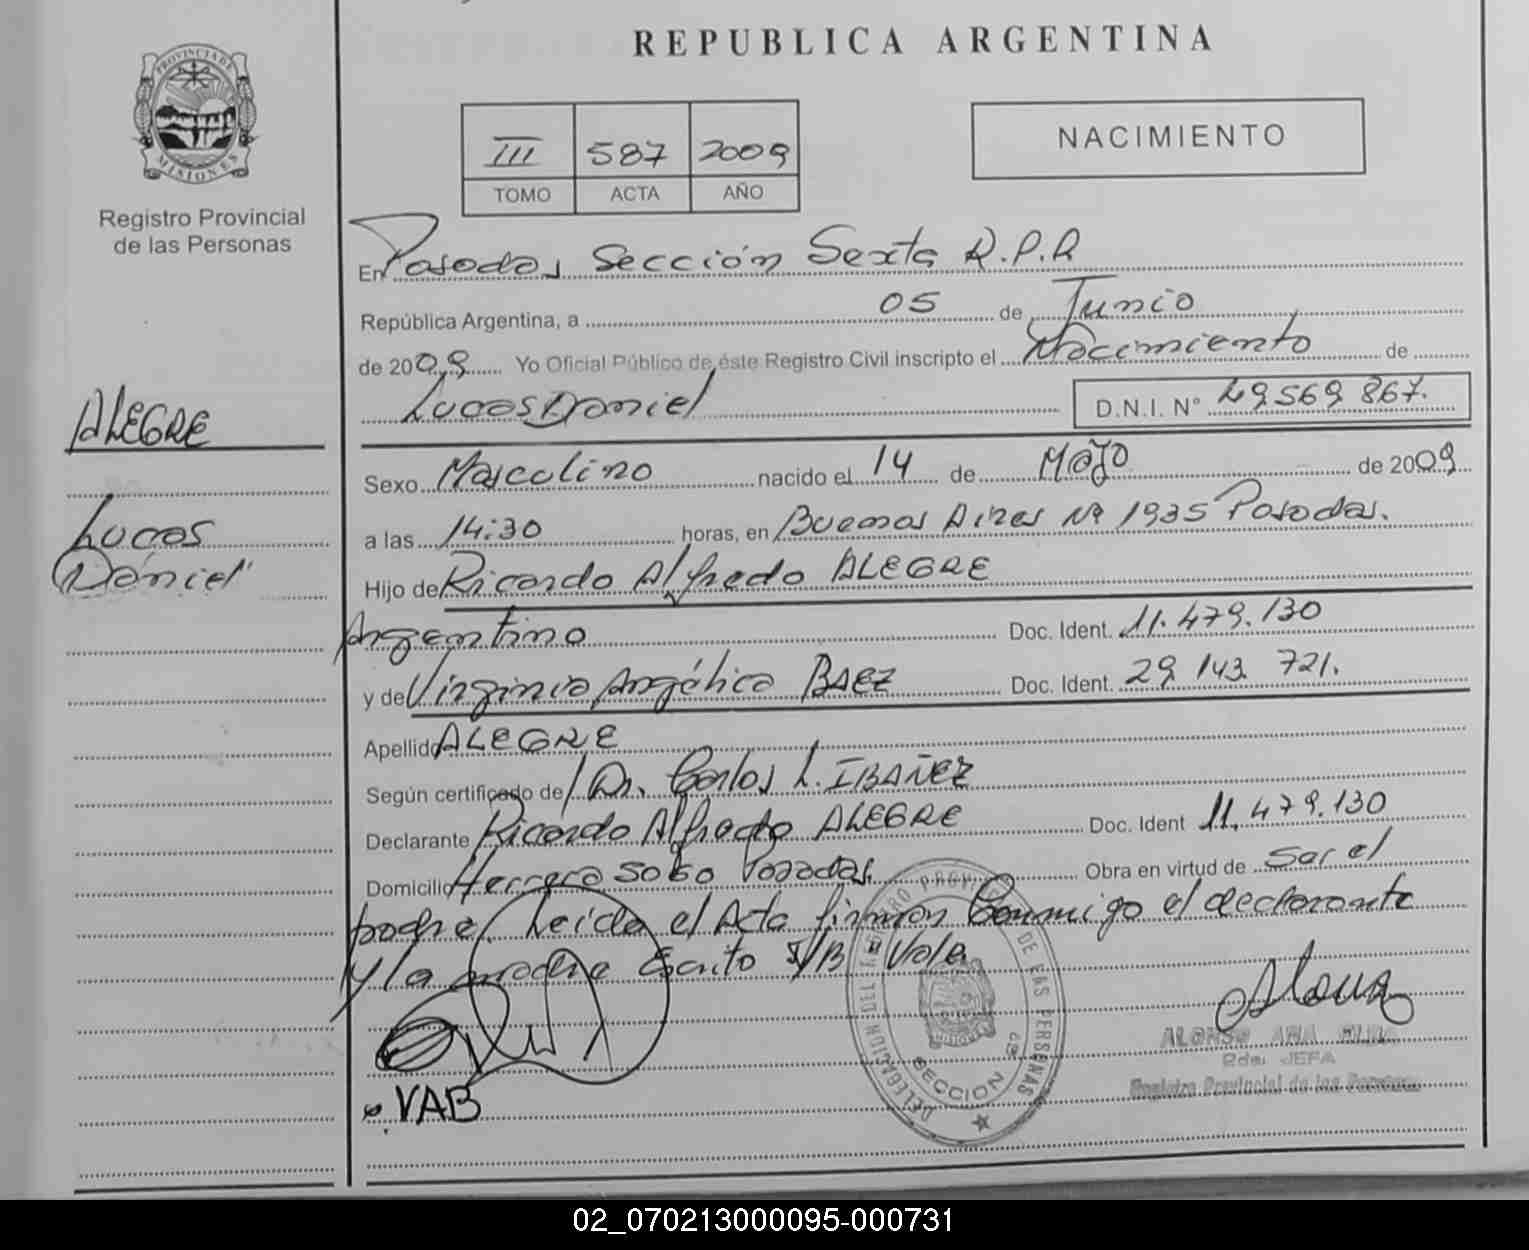 REPUBLICA ARGENTINA
PROVINCIA DE
MISIONES
Registro Provincial
de las Personas
III 587 2009
TOMO ACTA AÑO
NACIMIENTO
En Posadas Sección Sexta R.P.P.
República Argentina, a 05 de Junio
de 2009 Yo Oficial Público de éste Registro Civil inscripto el Nacimiento de
Lucas Daniel D.N.I. N° 49.569.867.
ALEGRE
Lucas
Daniel
Sexo Masculino nacido el 14 de Mayo de 2009
a las 14:30 horas, en Buenos Aires Nº 1935 Posadas.
Hijo de Ricardo Alfredo ALEGRE
Argentino Doc. Ident. 11.479.130
y de Virginia Angélica BAEZ Doc. Ident. 29.143.721.
Apellido ALEGRE
Según certificado de Dr. Carlos L. IBAÑEZ
Declarante Ricardo Alfredo ALEGRE Doc. Ident 11.479.130
Domicilio Herrera Posadas. Obra en virtud de ser el
padre. Leída el Acta firman Conmigo el declarante
y la madre Escrito S/B "Vale
DELEGACION DEL REGISTRO PROVINCIAL DE LAS PERSONAS
SECCION 6ª
VAB
ALONSO ANA
Pda. JEFA
Registro Provincial de las Personas
02_070213000095-000731